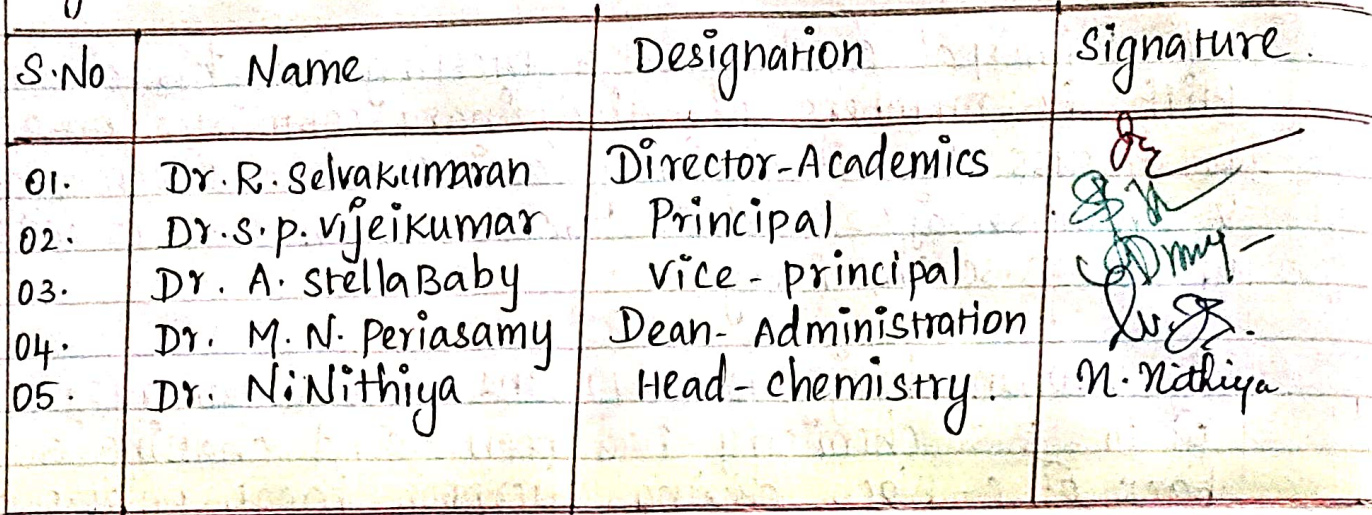 S.No Name Designation Signature.
01. Dr. R. Selvakumaran Director-Academics
02. Dr. S. P. Vijeikumar Principal
03. Dr. A. Stella Baby Vice-principal
04. Dr. M. N. Periasamy Dean-Administration
05. Dr. N. Nithiya Head-chemistry. N. Nithiya